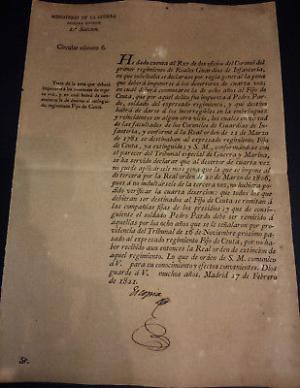 MINISTERIO DE LA GUERRA
2.ª Seccion.
Circular número 6.
Trata de la pena que deberá
imponerse á los desertores de cuarta
vez, y en cuál habrá de
regimiento Fijo de Ceuta.
He dado cuenta al Rey de dos oficios del Coronel del
primer regimiento de Reales Guardias de Infantería,
en que solicitaba se declarase por regla general la pena
que deberá imponerse á los desertores de cuarta vez,
en cuál deberá conmutarse la de ocho años al Fijo de
Ceuta, que por aquel delito fue impuesta á Pedro
Pardo, soldado del expresado regimiento, y qué destino
habrá de darse á los incorregibles en la embriaguez
y reincidentes en algun otro vicio, los cuales en virtud
de las facultades de los Coroneles de Guardias de Infantería,
y conforme á la Real órden de 21 de Marzo
de 1781 se destinaban al expresado regimiento Fijo
de Ceuta, ya extinguido; y S. M., conformándose con
el parecer del Tribunal especial de Guerra y Marina,
se ha servido declarar que al desertor de cuarta vez no
puede aplicársele mas pena que la que se impone al
de tercera por la Real órden de 20 de Marzo de
pues á no indultársele de la tercera vez, no hubiera podido
verificar la cuarta desercion; que todos los que
debieran ser destinados al Fijo de Ceuta se remitan á
las compañías fijas de los presidios; y que de consiguiente
el soldado Pedro Pardo debe ser remitido á
aquellas por los ocho años que se le señalaron por providencia
del Tribunal de 16 de Noviembre próximo pasado
al expresado regimiento Fijo de Ceuta, por no haber
recibido aun entonces la Real órden de extincion de
aquel regimiento. Lo que de órden de S. M. comunico
á V. para su conocimiento y efectos convenientes. Dios
guarde á V. muchos años. Madrid 17 de Febrero
de 1821.
Sr.